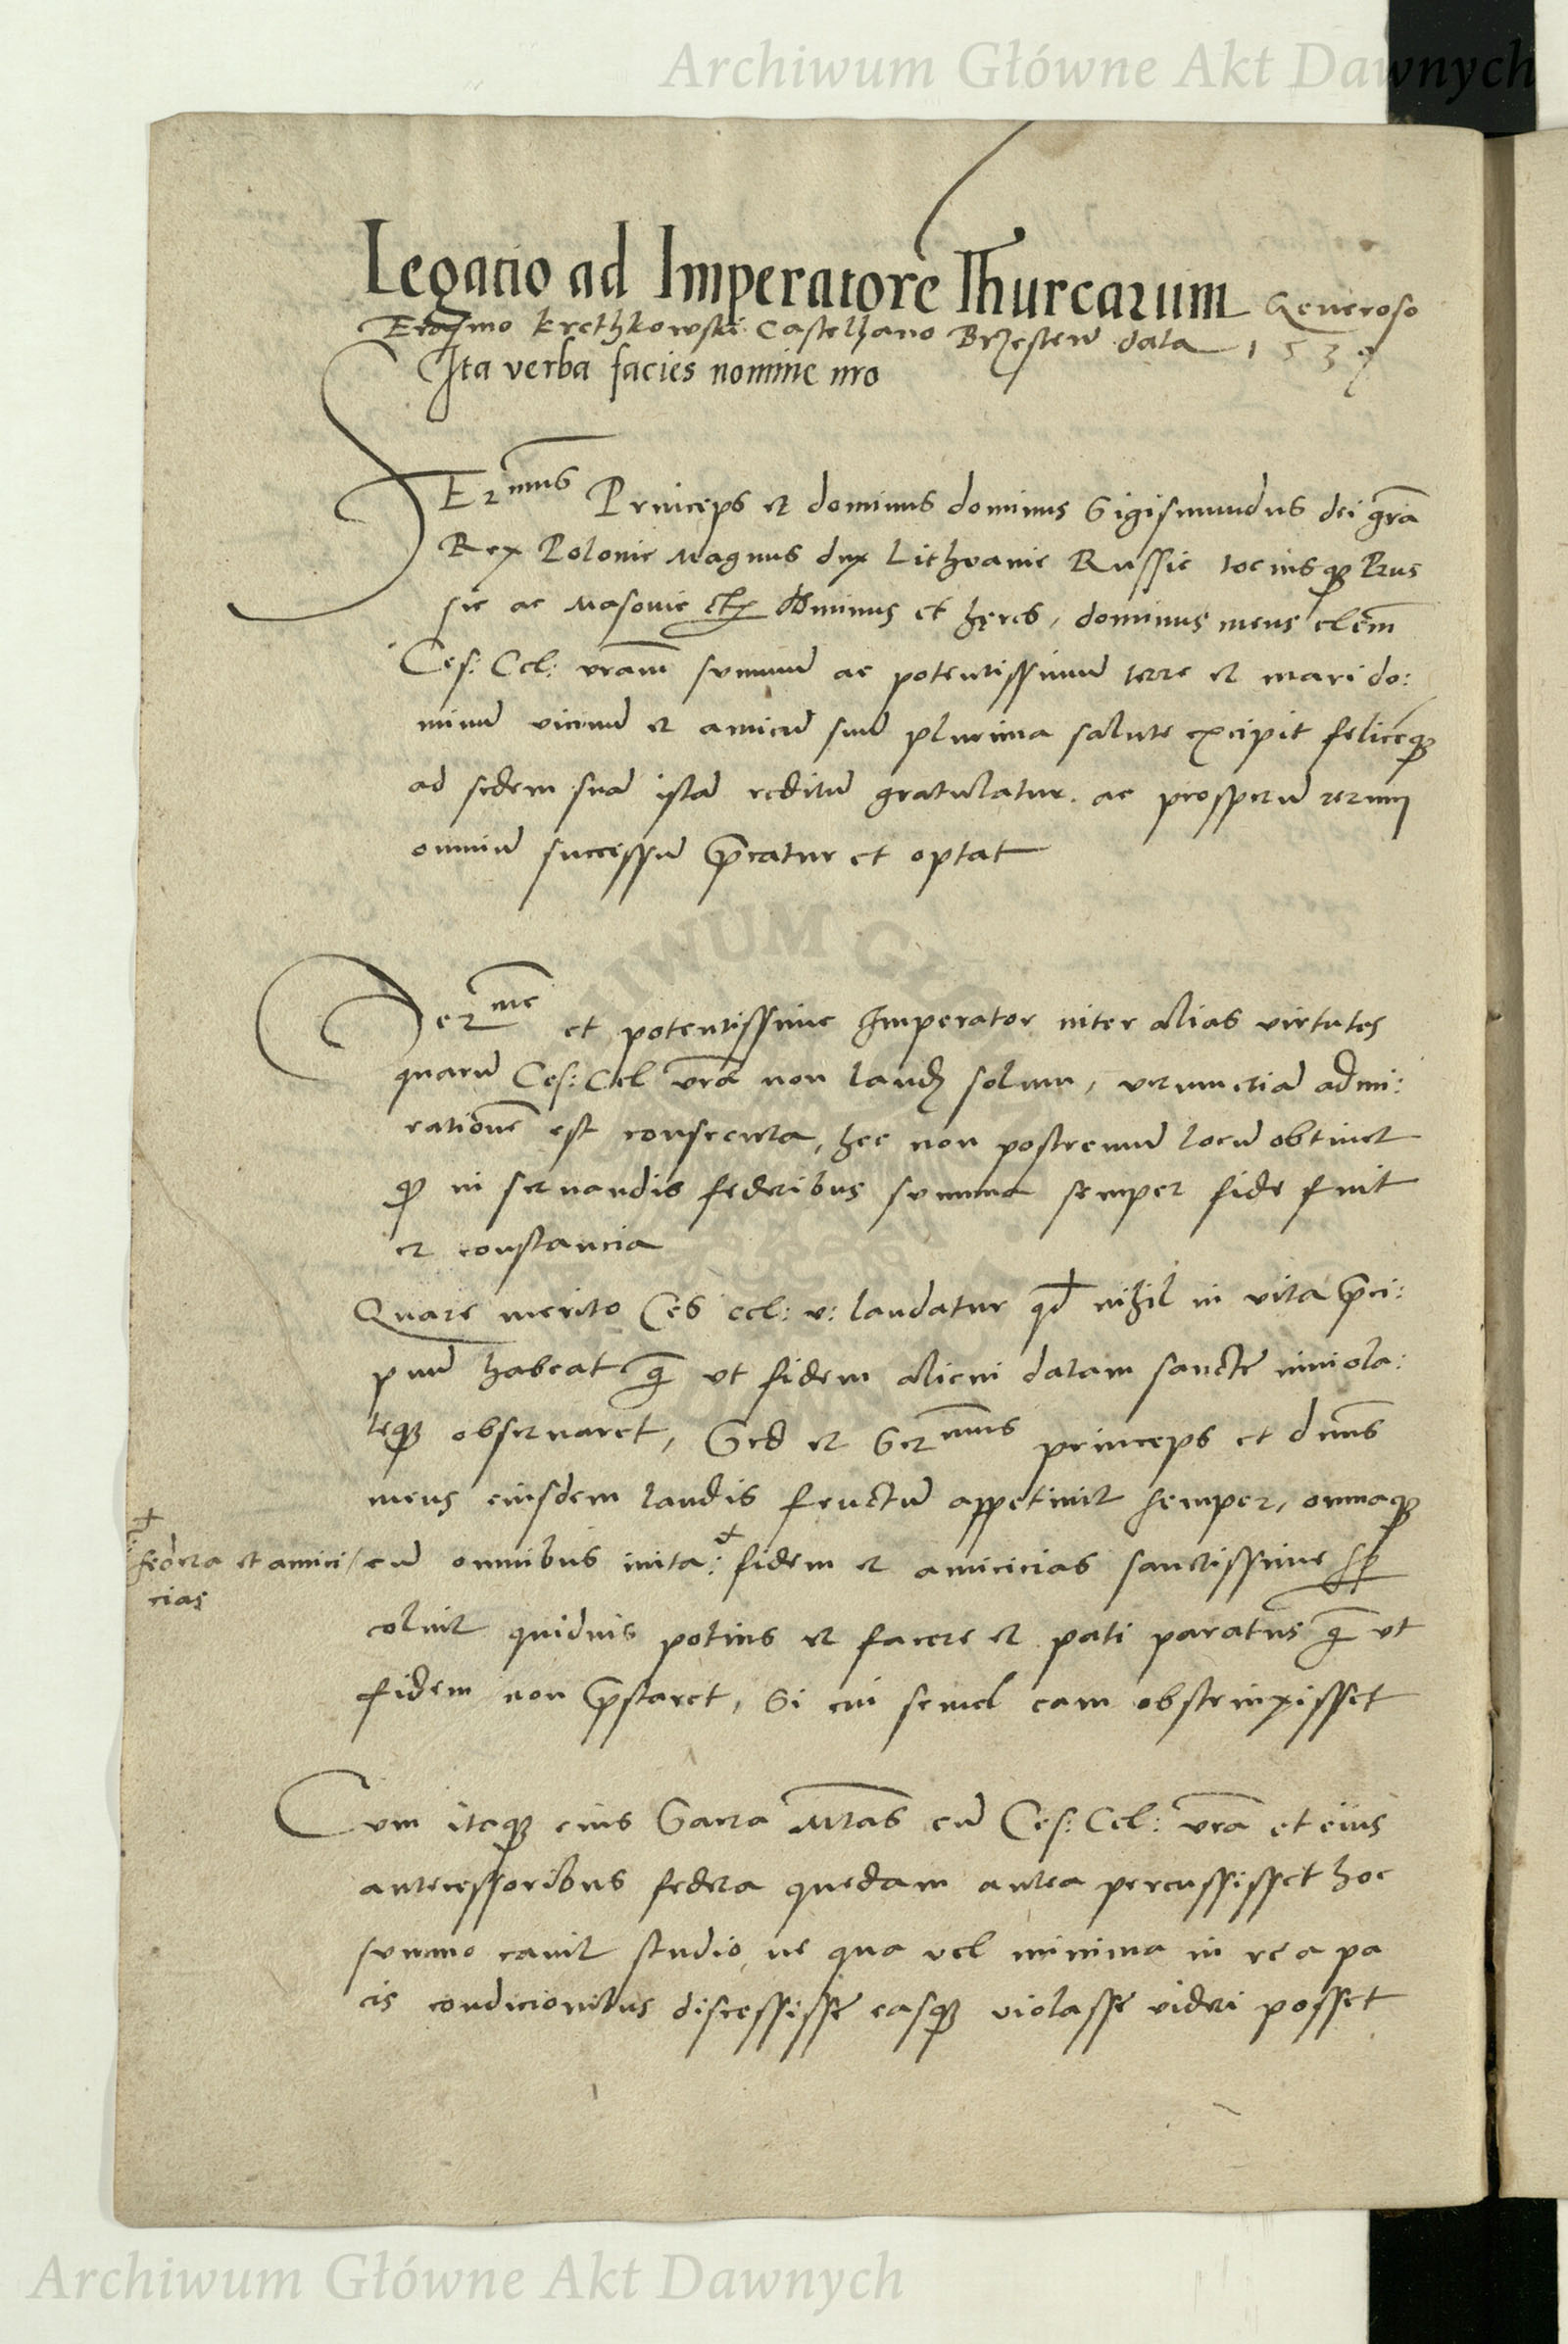 Archiwum Główne Akt Dawnych
Legatio ad Imperatorē Thurcarum Generoso
Erazmo Krethkowski Castelhano Brzesteñ data 153
Ita verba facies nomine nro
SErmus Princeps et dominus dominus Sigismundus dei gra
Rex Polonie Magnus dux Lithvanie Russie tociusqꝫ Prus
sie ac Masovie etc dominus et hęres, dominus meus clem
Ces: Cel: vram summū ac potentissimū terre et mari do:
minū vicinū et amicū suū plurima salute excipit felicēqꝫ
ad sedem suā istā reditū gratulatur. ac prosperū rerum
omniū successū p̄catur et optat
Serme et potentissime Imperator inter alias virtutes
quarū Ces: Cel vra non laudē solum, verumetiā admi:
rationē est consecuta, hec non postremū locū obtinet
qꝫ in servandis federibus summa semper fide fuit
et constancia
Quare merito Ces cel: v: laudatur qd nihil in vita p̄ci:
puū habeat q̄ ut fidem alicui datam sanctē inviola:
teqꝫ observaret, Sed et Sermus princeps et dnus
meus eiusdem laudis fructū appetivit semper, omniaqꝫ
+
federa et amici
cias
cū omnibus inita: + fidem et amicicias sanctissime
coluit quidvis potius et facere et pati paratus q̄ ut
fidem non p̄staret, Si cui semel eam obstrinxisset
Cum itaqꝫ eius Sacra Mtas cū Ces: Cel: vra et eius
antecessoribus federa quedam antea percussisset hoc
summo cavit studio, ne qua vel minima in re a pa
cis condicionibus discessisse easqꝫ violasse videri posset
Archiwum Główne Akt Dawnych